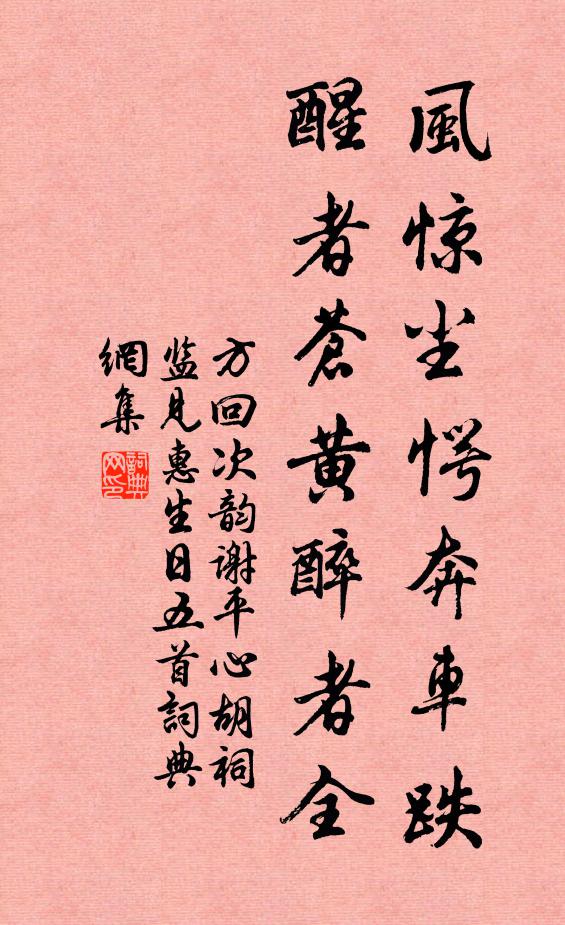 風惊尘愕奔車跌
醒者蒼黄醉者全
方回次韵谢平心胡祠
监見惠生日五首詞典
網集
詞典网印